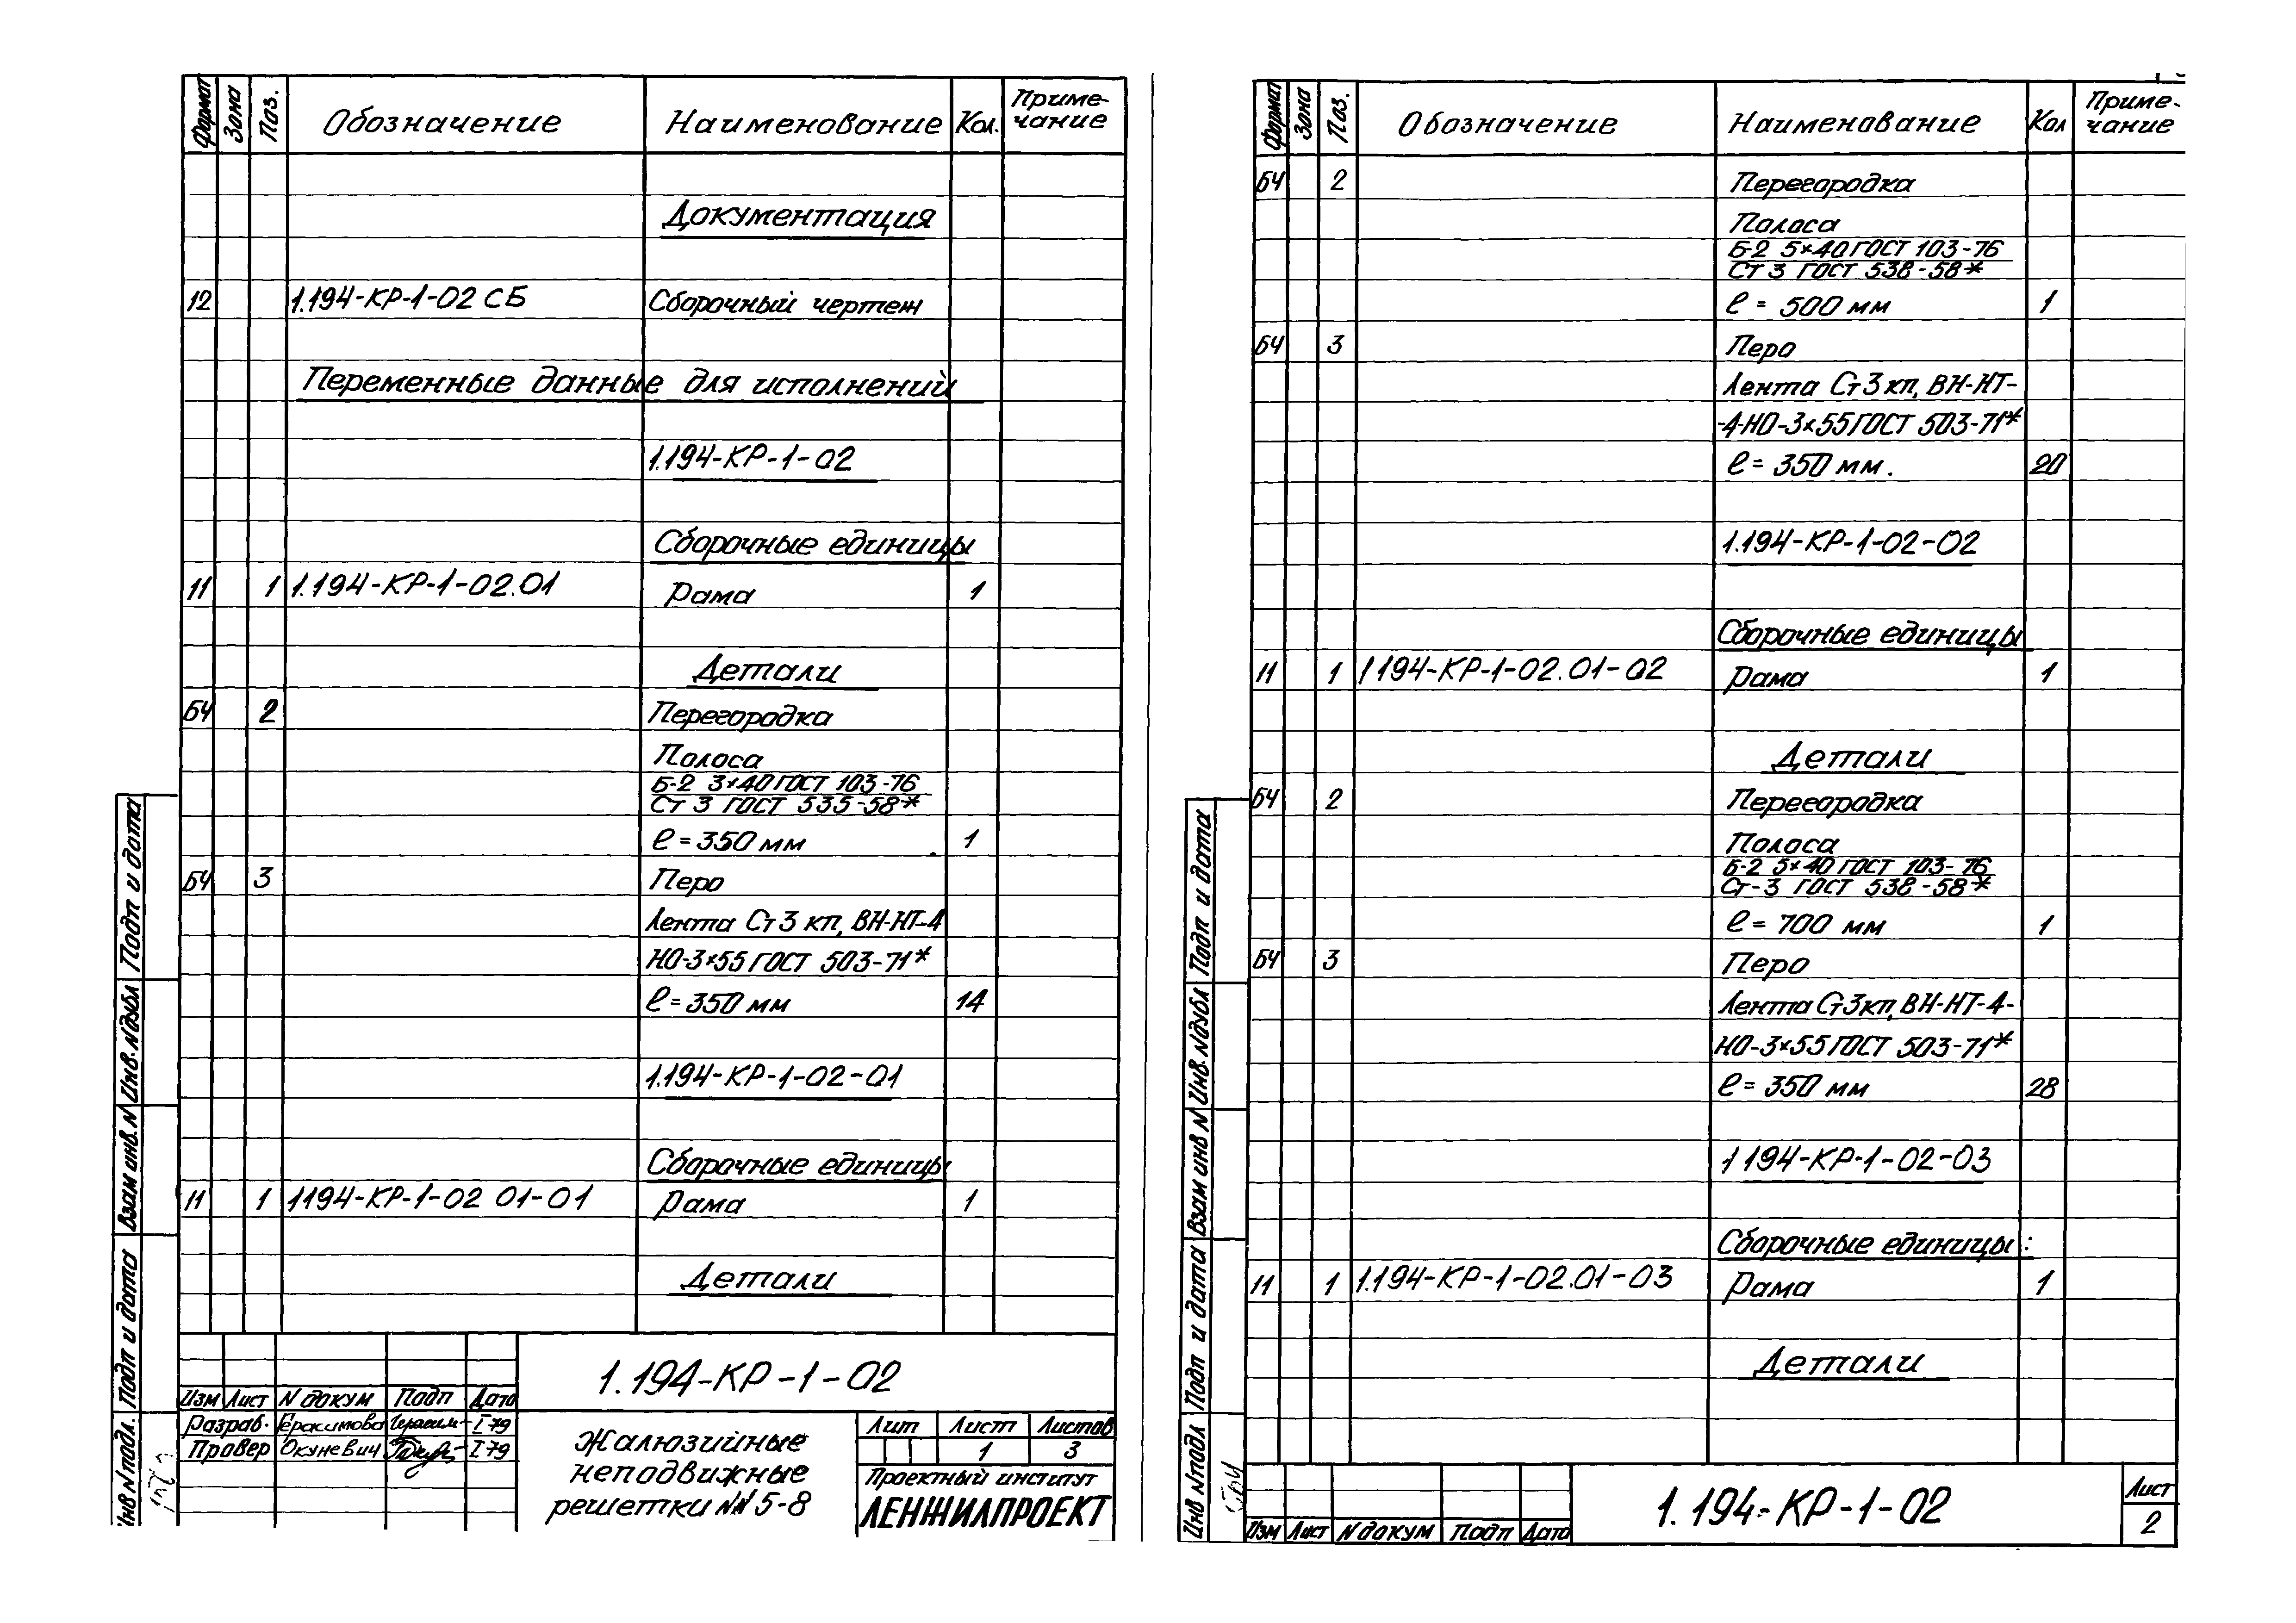 Формат Зона Поз. Обозначение Наименование Кол. Приме-
чание
Документация
12 1.194-КР-1-02 СБ Сборочный чертеж
Переменные данные для исполнений
1.194-КР-1-02
Сборочные единицы
11 1 1.194-КР-1-02.01 Рама 1
Детали
БЧ 2 Перегородка
Полоса
Б-2 3×40 ГОСТ 103-76
Ст 3 ГОСТ 535-58*
ℓ = 350 мм 1
БЧ 3 Перо
Лента Ст 3 кп, ВН-НТ-4
НО-3×55 ГОСТ 503-71*
ℓ = 350 мм 14
1.194-КР-1-02-01
Сборочные единицы
11 1 1194-КР-1-02 01-01 Рама 1
Детали
1.194-КР-1-02
Изм Лист N докум Подп Дата
Разраб. Герасимова I 79
Провер Окуневич I 79
Жалюзийные
неподвижные
решетки NN 5-8
Лит Лист Листов
1 3
Проектный институт
ЛЕНЖИЛПРОЕКТ
Подп и дата
Инв. N дубл
Взам инв. N
Подп и дата
Инв N подл.
Формат Зона Поз. Обозначение Наименование Кол Приме-
чание
БЧ 2 Перегородка
Полоса
Б-2 5×40 ГОСТ 103-76
Ст 3 ГОСТ 538-58*
ℓ = 500 мм 1
БЧ 3 Перо
Лента Ст 3 кп, ВН-НТ-
-4-НО-3×55 ГОСТ 503-71*
ℓ = 350 мм. 20
1.194-КР-1-02-02
Сборочные единицы
11 1 1 194-КР-1-02.01-02 Рама 1
Детали
БЧ 2 Перегородка
Полоса
Б-2 5×40 ГОСТ 103-76
Ст-3 ГОСТ 538-58*
ℓ = 700 мм 1
БЧ 3 Перо
Лента Ст 3 кп, ВН-НТ-4-
НО-3×55 ГОСТ 503-71*
ℓ = 350 мм 28
1 194-КР-1-02-03
Сборочные единицы:
11 1 1.194-КР-1-02.01-03 Рама 1
Детали
1.194-КР-1-02
Лист
2
Изм Лист N докум Подп Дата
Подп и дата
Инв. N дубл
Взам инв N
Подп и дата
Инв N подл